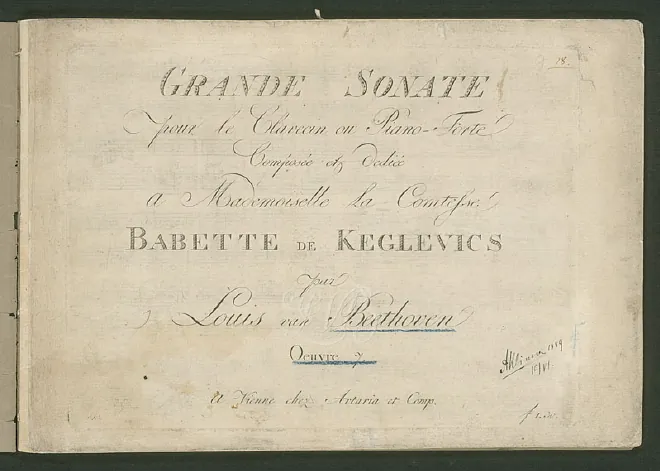 18.
GRANDE SONATE
pour le Clavecin ou Piano-Forte
Composée et dediée
a Mademoiselle la Comtesse
BABETTE DE KEGLEVICS
par
Louis van Beethoven
Oeuvre 7
a Vienne chez Artaria et Comp.